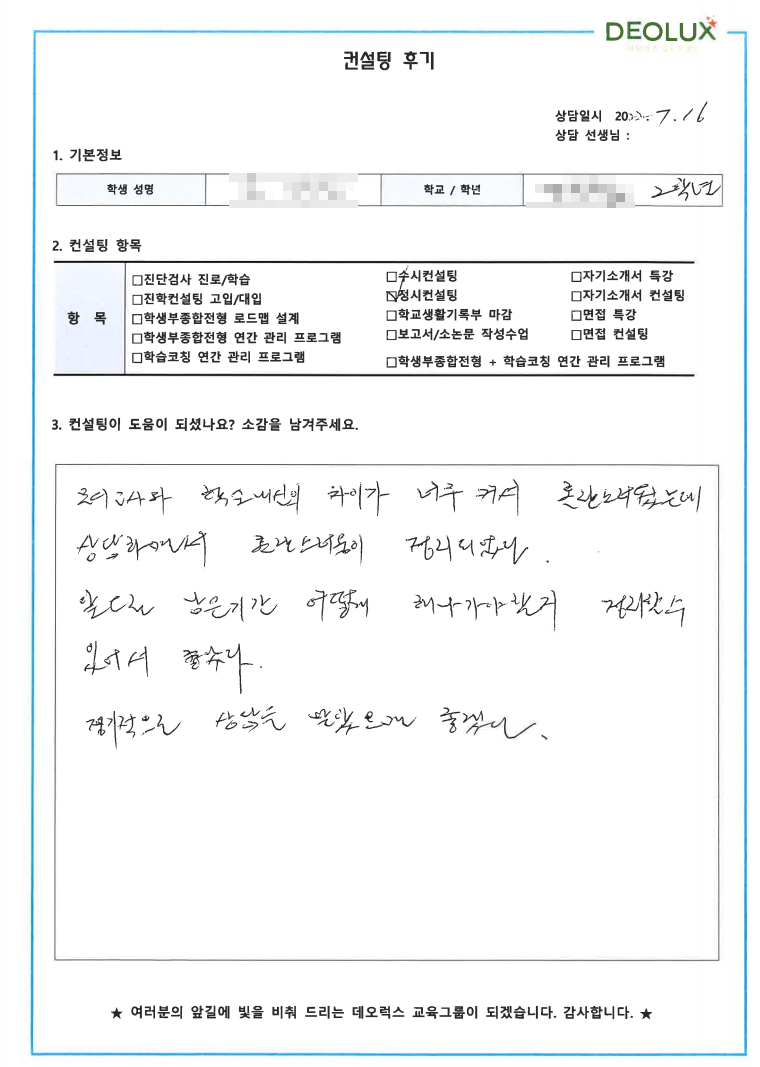 DEOLUX
컨설팅 후기
상담일시 20 7.16
상담 선생님 :
1. 기본정보
학생 성명 학교 / 학년 2학년
2. 컨설팅 항목
항 목
□진단검사 진로/학습
□진학컨설팅 고입/대입
□학생부종합전형 로드맵 설계
□학생부종합전형 연간 관리 프로그램
□학습코칭 연간 관리 프로그램
□수시컨설팅
☑정시컨설팅
□학교생활기록부 마감
□보고서/소논문 작성수업
□학생부종합전형 + 학습코칭 연간 관리 프로그램
□자기소개서 특강
□자기소개서 컨설팅
□면접 특강
□면접 컨설팅
3. 컨설팅이 도움이 되셨나요? 소감을 남겨주세요.
모의고사와 학교내신의 차이가 너무 커서 혼란스러웠는데
상담하면서 혼란스러움이 정리되었다.
앞으로 남은기간 어떻게 해나가야할지 정리할수
있어서 좋았다.
정기적으로 상담을 받았으면 좋겠다.
★ 여러분의 앞길에 빛을 비춰 드리는 데오럭스 교육그룹이 되겠습니다. 감사합니다. ★